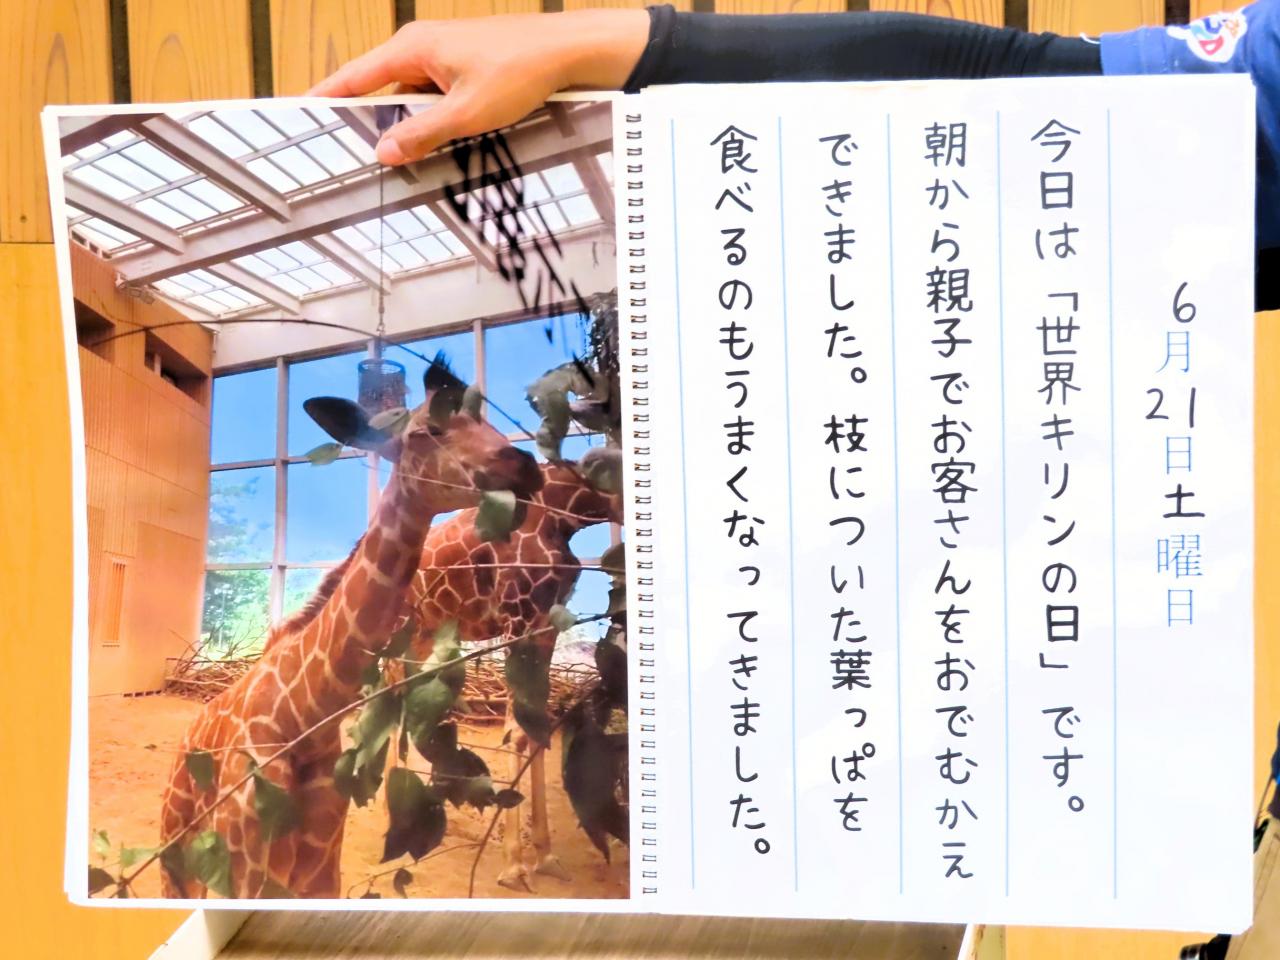 6月21日土曜日
今日は「世界キリンの日」です。
朝から親子でお客さんをおでむかえ
できました。枝についた葉っぱを
食べるのもうまくなってきました。